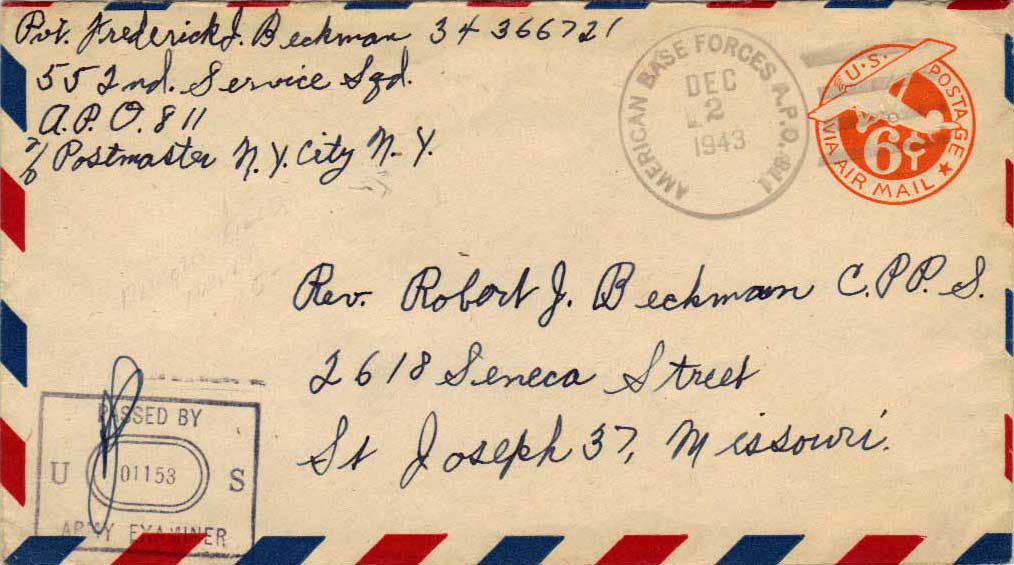 Pvt. Frederick J. Beckman 34 366721
552nd. Service Sqd.
A.P.O. 811
c/o Postmaster N.Y. City N.Y.
AMERICAN BASE FORCES A.P.O. 811
DEC
2
1943
U.S. POSTAGE
6¢
VIA AIR MAIL
Rev. Robert J. Beckman C.PP.S.
2618 Seneca Street
St Joseph 37, Missouri.
PASSED BY
U 01153 S
ARMY EXAMINER